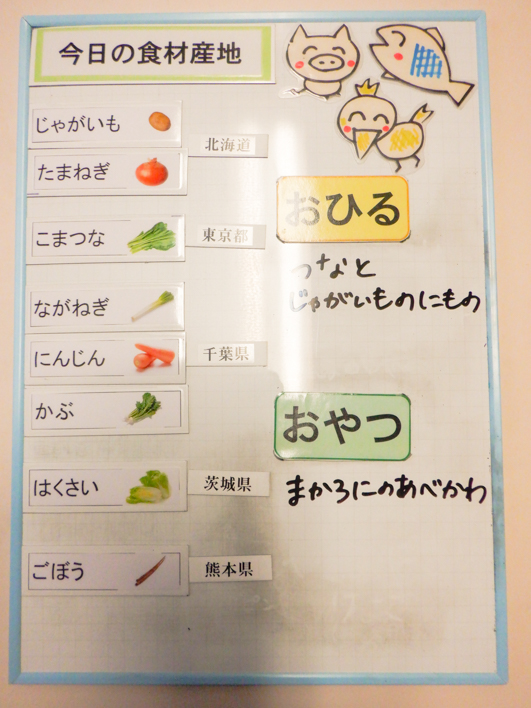 今日の食材産地
じゃがいも
たまねぎ
北海道
こまつな
東京都
ながねぎ
にんじん
かぶ
千葉県
はくさい
茨城県
ごぼう
熊本県
おひる
つなと
じゃがいものにもの
おやつ
まかろにのあべかわ